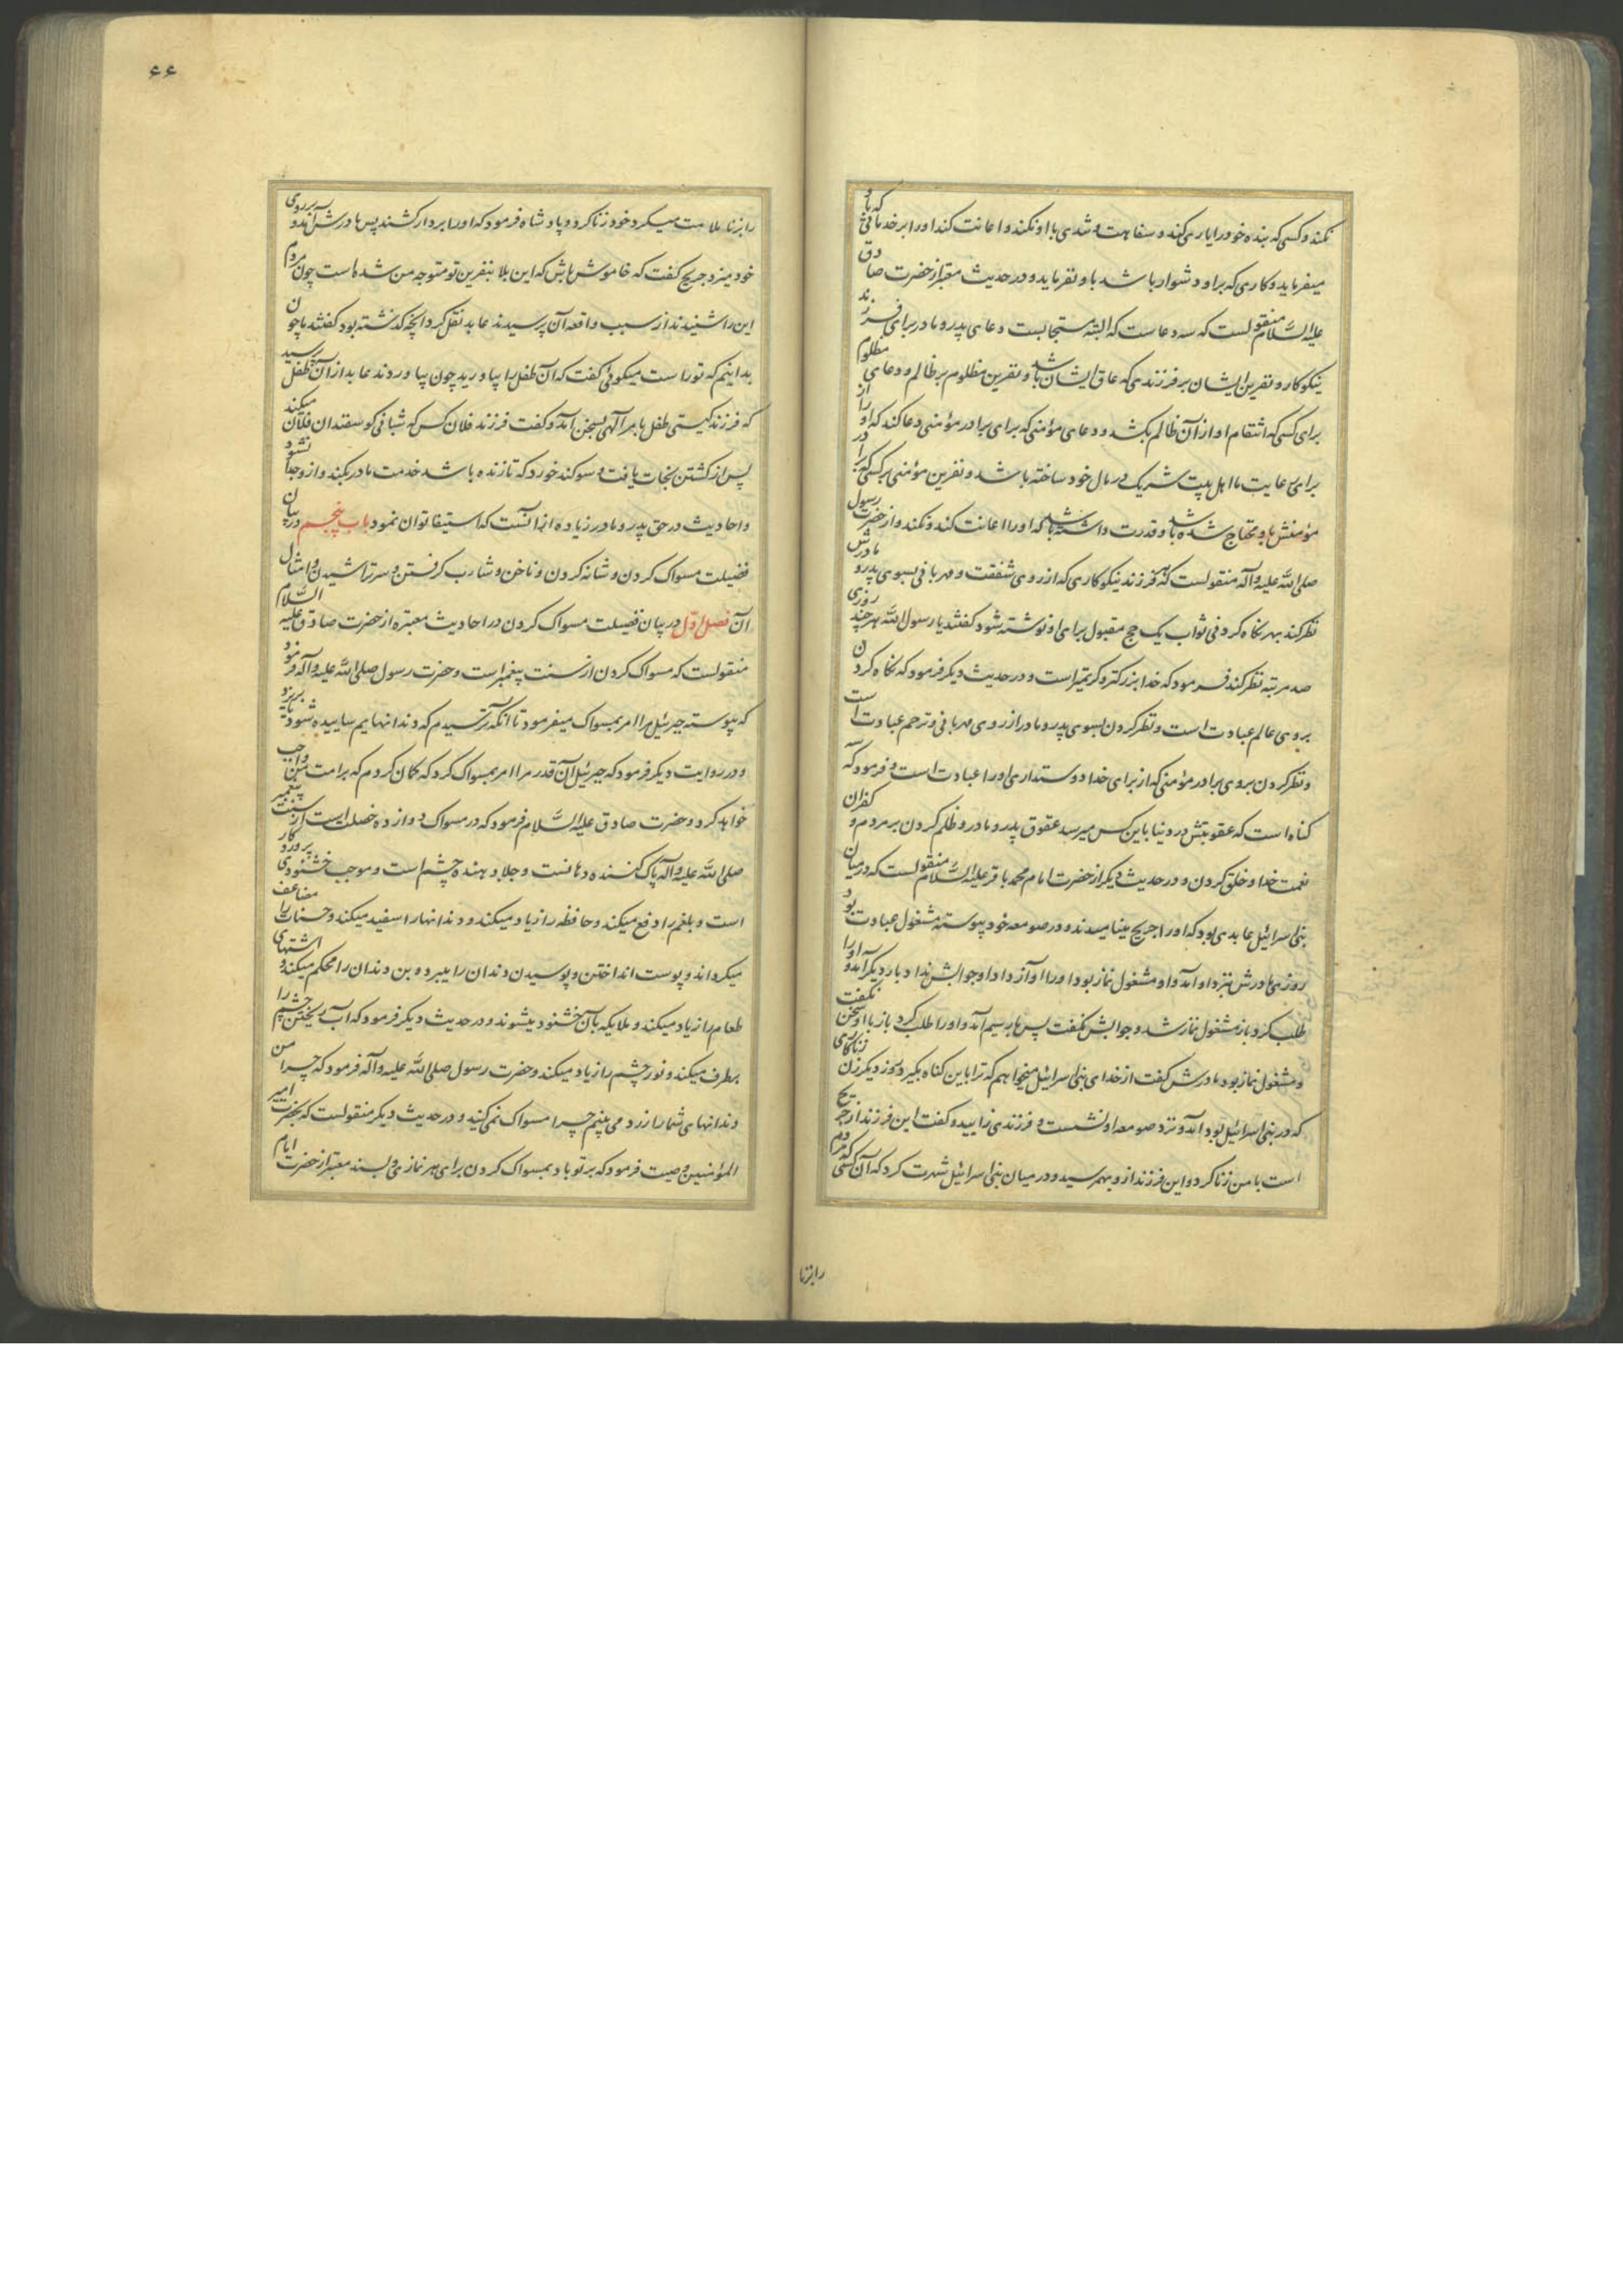 نکند و کسی که بنده خود را یاری کند و سفاهت و تندی با او نکند و اعانت کند او را بر خدماتی که باو
میفرماید و کاری که بر او دشوار باشد باو نفرماید و در حدیث معتبر از حضرت صادق
علیه السَّلام منقولست که سه دعاست که البته مستجابست دعای پدر و مادر برای فرزند
نیکوکار و نفرین ایشان بر فرزندی که عاق ایشان باشد و نفرین مظلوم بر ظالم و دعای مظلوم
برای کسی که انتقام او از آن ظالم بکشد و دعای مؤمنی که برای برادر مؤمنی دعا کند که او را از
برای رعایت ما اهل بیت شریک در مال خود ساخته باشد و نفرین مؤمنی بر کسی که برادر
مؤمنش باو محتاج شده باشد و قدرت داشته باشد که او را اعانت کند و نکند و از حضرت رسول
صلی الله علیه وآله منقولست که هر فرزند نیکوکاری که از روی شفقت و مهربانی بسوی پدر و مادرش
نظر کند بهر نگاه کردنی ثواب یک حج مقبول برای او نوشته شود گفتند یا رسول الله هر چند روزی
صد مرتبه نظر کند فرمود که خدا بزرکتر و کریمتر است و در حدیث دیگر فرمود که نگاه کردن
بروی عالم عبادت است و نظر کردن بسوی پدر و مادر از روی مهربانی و ترحم عبادت است
و نظر کردن بروی برادر مؤمنی که از برای خدا دوستداری او را عبادت است و فرمود که سه
گناه است که عقوبتش در دنیا باین کس میرسد عقوق پدر و مادر و ظلم کردن بر مردم و کفران
نعمت خدا و خلق کردن و در حدیث دیگر از حضرت امام محمد باقر علیه السَّلام منقولست که در میان
بنی اسرائیل عابدی بود که او را جریج مینامیدند و در صومعه خود پیوسته مشغول عبادت بود
روزی مادرش بنزد او آمد و او مشغول نماز بود او را آواز داد او جوابش نداد بار دیگر آمد و او را
طلب کرد باز مشغول نماز شد و جوابش نگفت پس بار سیم آمد و او را طلب کرد باز با او سخن نگفت
و مشغول نماز بود مادرش گفت از خدای بنی اسرائیل میخواهم که ترا باین گناه بگیرد روز دیگر زن زناکاری
که در بنی اسرائیل بود آمد و نزد صومعه او نشست و فرزندی زایید و گفت این فرزند از جریج
است با من زنا کرد و این فرزند از و بهم رسید و در میان بنی اسرائیل شهرت کرد که آن کسی که مردم
را بزنا
۶۶
را بزنا ملامت میکرد خود زنا کرد و پادشاه فرمود که او را بردار کشند پس مادرش آمد و بر روی
خود میزد جریج گفت که خاموش باش که این بلا بنفرین تو متوجه من شده است چون مردم
این را شنیدند از سبب واقعه آن پرسیدند عابد نقل کرد انچه گذشته بود گفتند ما چون
بدانیم که تو راست میگوئی گفت که آن طفل را بیاورید چون بیاوردند عابد از آن طفل پرسید
که فرزند کیستی طفل بامر آلهی بسخن آمد و گفت فرزند فلان کس که شبانی کوسفندان فلان میکند
پس از کشتن نجات یافت و سوکند خورد که تا زنده باشد خدمت مادر بکند و ازو جدا نشود
و احادیث در حق پدر و مادر زیاده از آنست که استیفا توان نمود باب پنجم در بیان
فضیلت مسواک کردن و شانه کردن و ناخن و شارب گرفتن و سر تراشیدن و امثال
آن فصل اوّل در بیان فضیلت مسواک کردن در احادیث معتبره از حضرت صادق علیه السَّلام
منقولست که مسواک کردن از سنت پیغمبرانست و حضرت رسول صلی الله علیه وآله فرمود
که پیوسته جبرئیل مرا امر بمسواک میفرمود تا آنکه ترسیدم که دندانهایم ساییده شود یا بریزد
و در روایت دیگر فرمود که جبرئیل آن قدر مرا امر بمسواک کرد که گمان کردم که بر امت من واجب
خواهد کرد و حضرت صادق علیه السَّلام فرمود که در مسواک دوازده خصلت است از سنت پیغمبر
صلی الله علیه وآله پاک کننده دهانست و جلا دهنده چشم است و موجب خشنودی پروردکار
است و بلغم را دفع میکند و حافظه را زیاد میکند و دندانها را سفید میکند و حسنات را مضاعف
میکرداند و پوست انداختن و پوسیدن دندان را میبرد و بن دندان را محکم میکند و اشتهای
طعام را زیاد میکند و ملایکه بآن خشنود میشوند و در حدیث دیگر فرمود که آب ریختن چشم را
برطرف میکند و نور چشم را زیاد میکند و حضرت رسول صلی الله علیه وآله فرمود که چرا من
دندانهای شما را زرد می بینم چرا مسواک نمی کنید و در حدیث دیگر منقولست که بحضرت امیر
المؤمنین وصیت فرمود که بر تو باد بمسواک کردن برای هر نمازی و بسند معتبر از حضرت امام